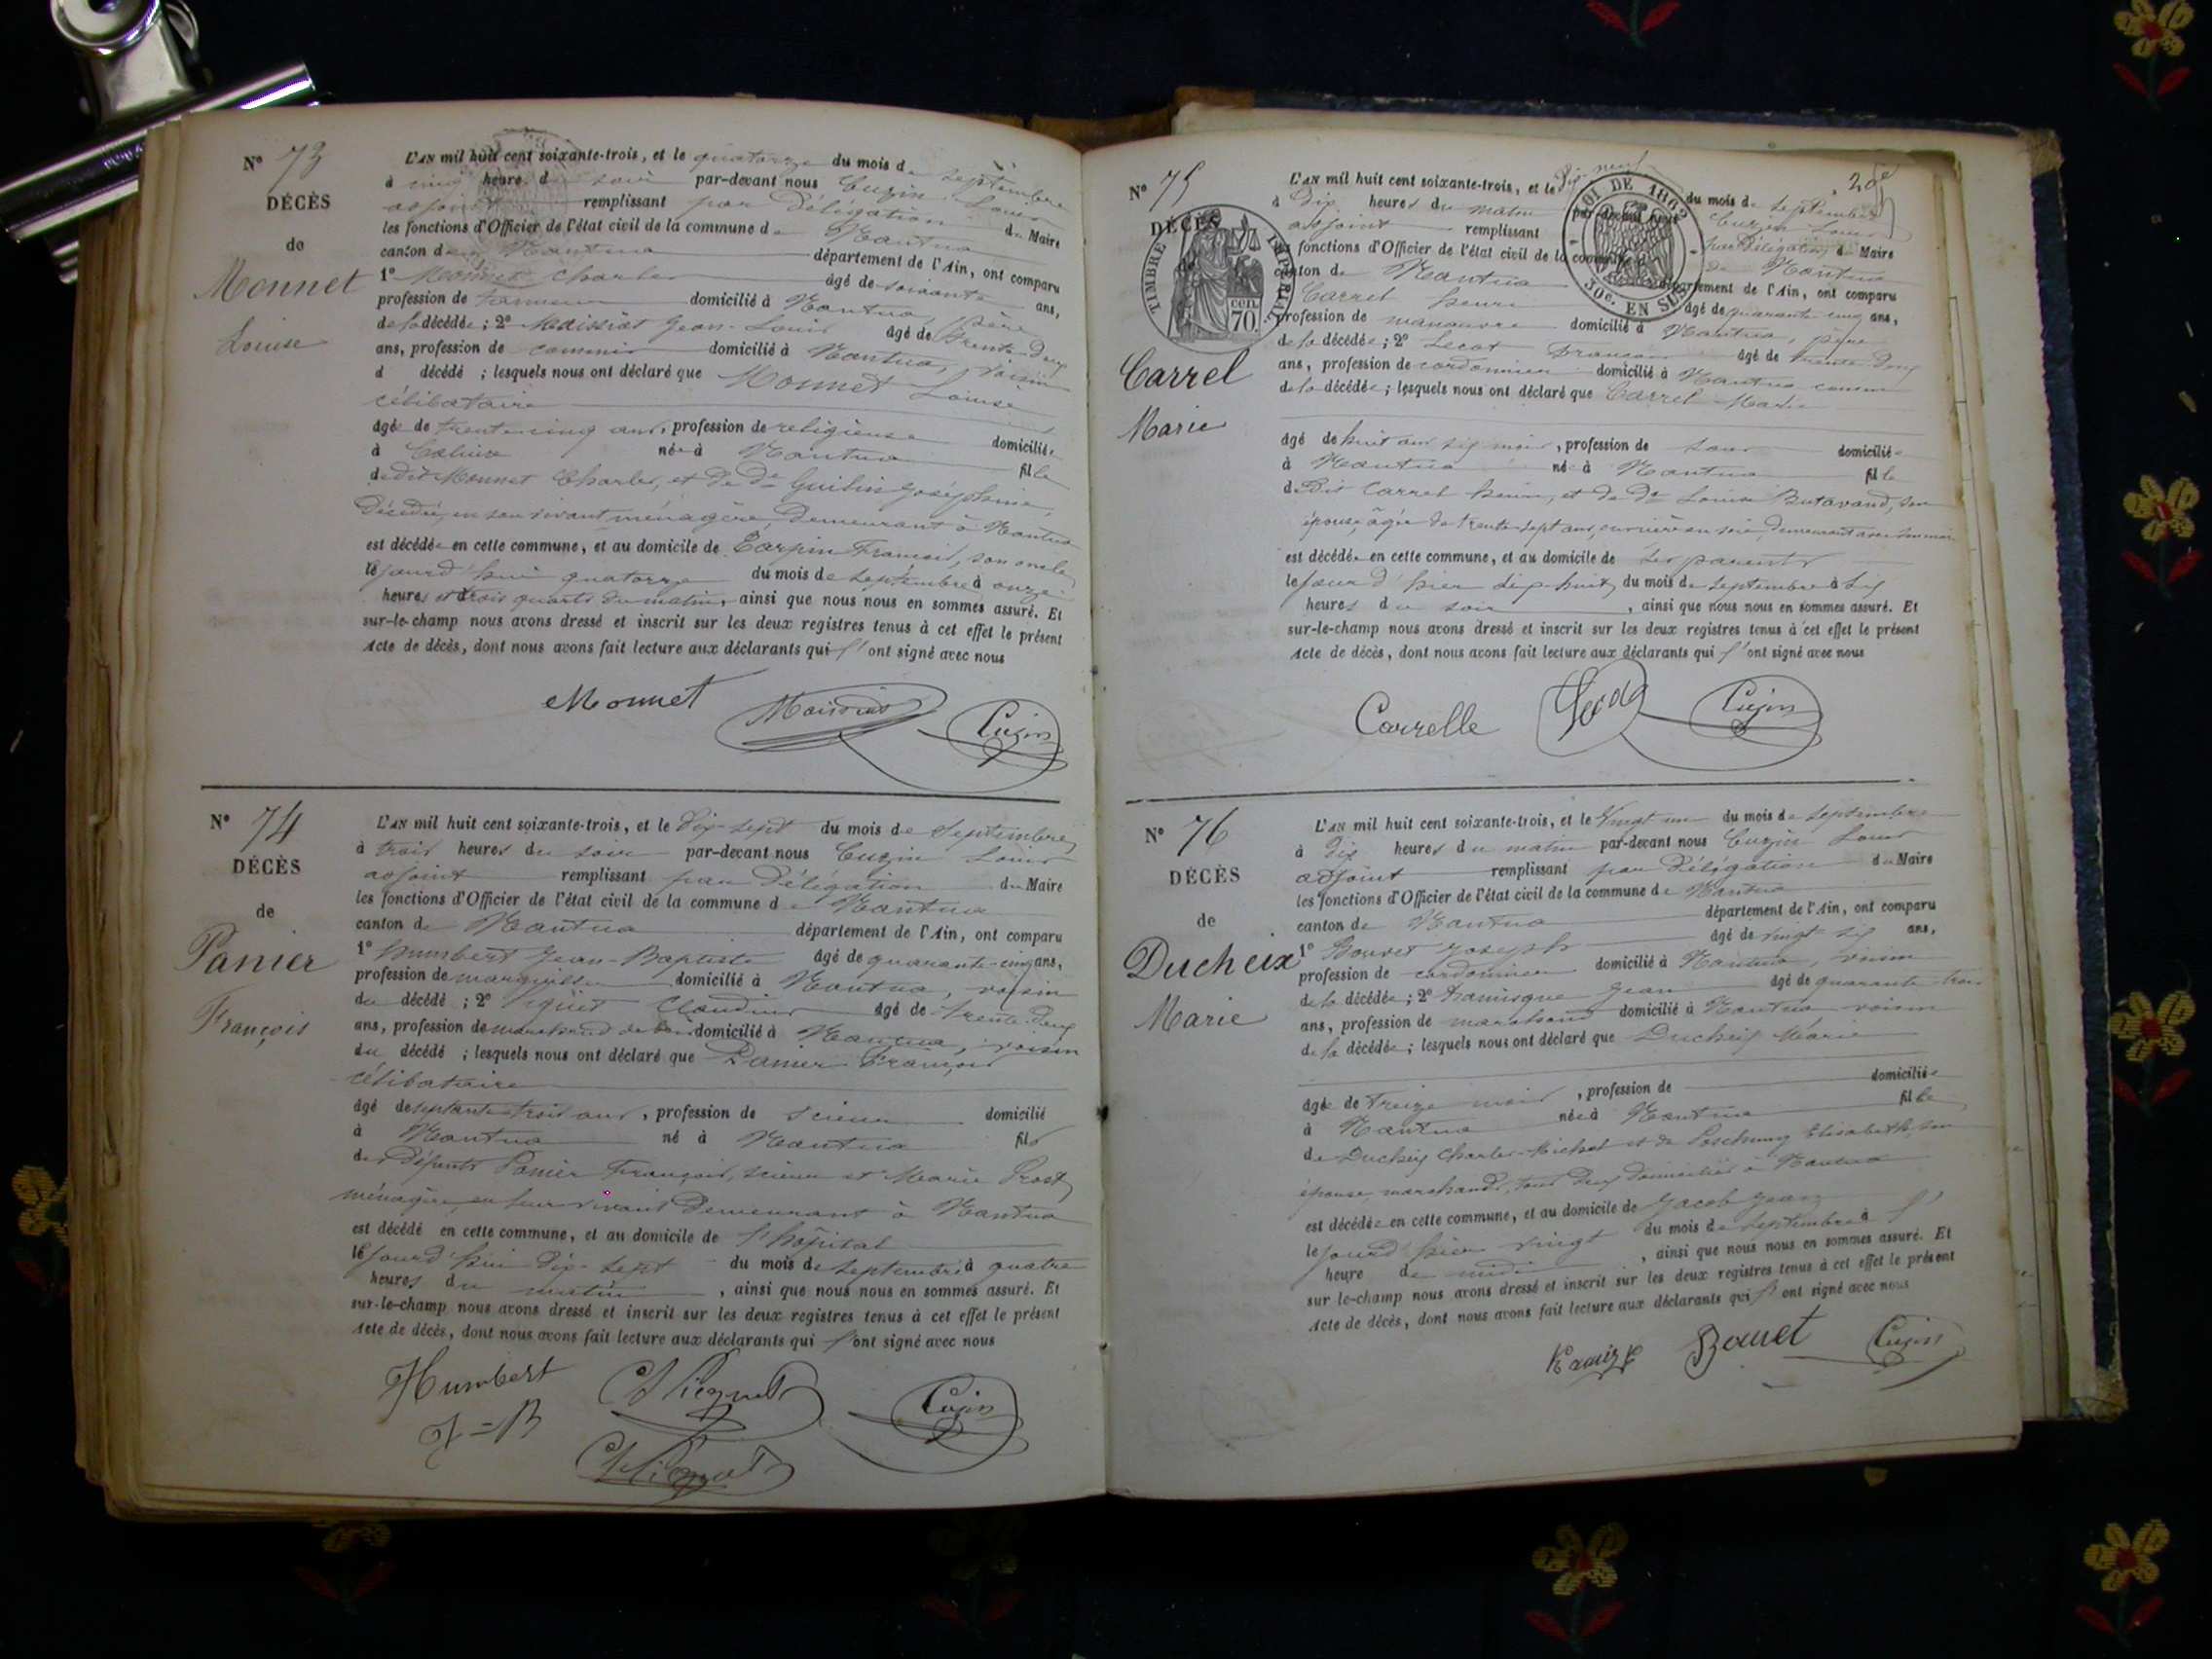 N° 73
DÉCÈS
de
Monnet
Louise
L'AN mil huit cent soixante-trois, et le quatorze du mois de septembre
à cinq heures du soir par-devant nous Cuzin Louis
adjoint remplissant par Délégation du Maire
les fonctions d'Officier de l'état civil de la commune de Nantua
canton de Nantua département de l'Ain, ont comparu
1° Monnet Charles âgé de soixante ans,
profession de tanneur domicilié à Nantua, père
de la décédée; 2° Maissiat Jean-Louis âgé de trente deux
ans, profession de commis domicilié à Nantua, voisin
d décédé ; lesquels nous ont déclaré que Monnet Louise
célibataire
âgée de trente cinq ans, profession de religieuse domiciliée
à née à Nantua fille
de dit Monnet Charles, et de De Joséphine,
Décédée, en son vivant ménagère, Demeurant à Nantua
est décédée en cette commune, et au domicile de François, son oncle
le jourd'hui quatorze du mois de septembre à onze
heures et trois quarts du matin, ainsi que nous nous en sommes assuré. Et
sur-le-champ nous avons dressé et inscrit sur les deux registres tenus à cet effet le présent
Acte de décès, dont nous avons fait lecture aux déclarants qui l'ont signé avec nous
Monnet Maissiat Cuzin
N° 74
DÉCÈS
de
Panier
François
L'AN mil huit cent soixante-trois, et le Dix-sept du mois de Septembre
à trois heures du soir par-devant nous Cuzin Louis
adjoint remplissant par Délégation du Maire
les fonctions d'Officier de l'état civil de la commune de Nantua
canton de Nantua département de l'Ain, ont comparu
1° humbert Jean-Baptiste âgé de quarante-cinq ans,
profession de marguillier domicilié à Nantua, voisin
du décédé ; 2° Claudius âgé de trente deux
ans, profession de marchand de bois domicilié à Nantua, voisin
du décédé ; lesquels nous ont déclaré que Panier François
célibataire
âgé de septante trois ans, profession de scieur domicilié
à Nantua né à Nantua fils
des défunts Panier François, scieur et Marie Prost
ménagère, en leur vivant Demeurant à Nantua
est décédé en cette commune, et au domicile de l'hôpital
le jourd'hui dix-sept du mois de septembre à quatre
heures du matin , ainsi que nous nous en sommes assuré. Et
sur-le-champ nous avons dressé et inscrit sur les deux registres tenus à cet effet le présent
Acte de décès, dont nous avons fait lecture aux déclarants qui l'ont signé avec nous
Humbert
J=B
Cuzin
N° 75
DÉCÈS
de
Carrel
Marie
TIMBRE IMPÉRIAL
70 cen.
LOI DE 1862
30c. EN SUS
L'AN mil huit cent soixante-trois, et le Dix-neuf du mois de septembre
à Dix heures du matin par-devant nous Cuzin Louis
adjoint remplissant par Délégation du Maire
les fonctions d'Officier de l'état civil de la commune de Nantua
canton de Nantua département de l'Ain, ont comparu
Carrel henri âgé de quarante cinq ans,
profession de manoeuvre domicilié à Nantua, père
de la décédée; 2° François âgé de trente deux
ans, profession de cordonnier domicilié à Nantua cousin
de la décédée; lesquels nous ont déclaré que Carrel Marie
âgé de huit ans six mois, profession de sans domiciliée
à Nantua née à Nantua fille
de Dit Carrel henri, et de De Louise Butavand, son
épouse, âgée de trente sept ans, ouvrière en soie, demeurant avec son mari
est décédée en cette commune, et au domicile de ses parents
le jour d'hier dix-huit du mois de septembre à six
heures du soir , ainsi que nous nous en sommes assuré. Et
sur-le-champ nous avons dressé et inscrit sur les deux registres tenus à cet effet le présent
Acte de décès, dont nous avons fait lecture aux déclarants qui l'ont signé avec nous
Carrelle Cuzin
N° 76
DÉCÈS
de
Ducheix
Marie
L'AN mil huit cent soixante-trois, et le Vingt un du mois de septembre
à dix heures du matin par-devant nous Cuzin Louis
adjoint remplissant par Délégation du Maire
les fonctions d'Officier de l'état civil de la commune de Nantua
canton de Nantua département de l'Ain, ont comparu
1° Bouvet Joseph âgé de vingt six ans,
profession de cordonnier domicilié à Nantua, voisin
de la décédée; 2° Jean âgé de quarante trois
ans, profession de marchand domicilié à Nantua voisin
de la décédée; lesquels nous ont déclaré que Ducheix Marie
âgée de treize mois , profession de domiciliée
à Nantua née à Nantua fille
de Ducheix Charles-Michel et de Elisabeth, son
épouse, marchands, tous deux domiciliés à Nantua
est décédée en cette commune, et au domicile de Jacob Jean
le jourd'hier vingt du mois de septembre à l'
heure de midi , ainsi que nous nous en sommes assuré. Et
sur le-champ nous avons dressé et inscrit sur les deux registres tenus à cet effet le présent
Acte de décès, dont nous avons fait lecture aux déclarants qui l'ont signé avec nous
Bouvet Cuzin